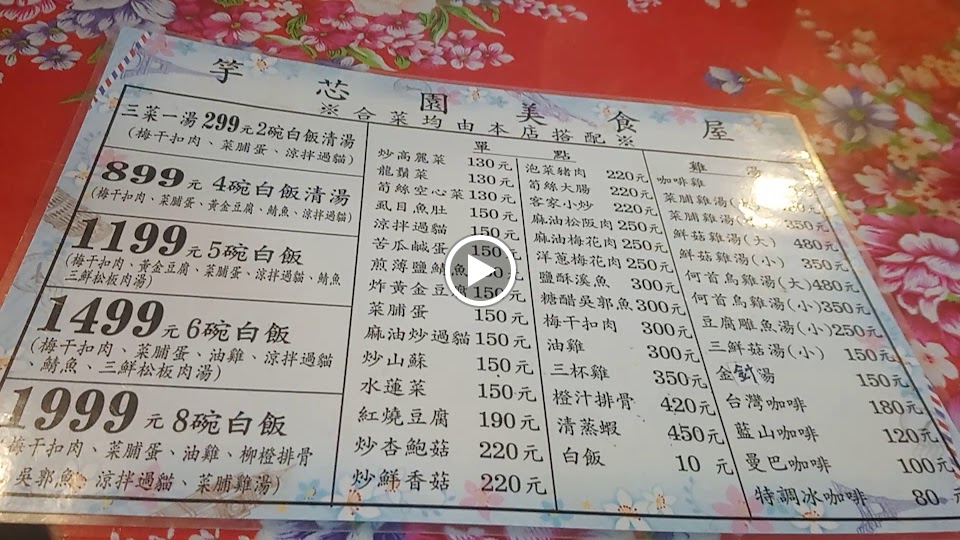 竽芯園美食屋
※合菜均由本店搭配※
三菜一湯299元2碗白飯清湯
(梅干扣肉、菜脯蛋、涼拌過貓)
899元 4碗白飯清湯
(梅干扣肉、菜脯蛋、黃金豆腐、鯖魚、涼拌過貓)
1199元5碗白飯
(梅干扣肉、黃金豆腐、菜脯蛋、涼拌過貓、鯖魚
三鮮松板肉湯)
1499元 6碗白飯
(梅干扣肉、菜脯蛋、油雞、涼拌過貓
、鯖魚、三鮮松板肉湯)
1999元 8碗白飯
梅干扣肉、菜脯蛋、油雞、柳橙排骨
吳郭魚、涼拌過貓、菜脯雞湯)
單點
炒高麗菜 130元
龍鬚菜 130元
筍絲空心菜 130元
虱目魚肚 150元
涼拌過貓 150元
苦瓜鹹蛋 150元
煎薄鹽鯖魚 元
炸黃金豆 150元
菜脯蛋 150元
麻油炒過貓 150元
炒山蘇 150元
水蓮菜 150元
紅燒豆腐 190元
炒杏鮑菇 220元
炒鮮香菇 220元
泡菜豬肉 220元
筍絲大腸 220元
客家小炒 220元
麻油松阪肉 250元
麻油梅花肉 250元
洋蔥梅花肉 250元
鹽酥溪魚 300元
糖醋吳郭魚 300元
梅干扣肉 300元
油雞 300元
三杯雞 350元
橙汁排骨 420元
清蒸蝦 450元
白飯 10元
雞湯
咖啡雞
菜脯雞湯(
菜脯雞湯( 350元
鮮菇雞湯(大) 480元
鮮菇雞湯(小) 350元
何首烏雞湯(大)480元
何首烏雞湯(小)350元
豆腐雕魚湯(小)250元
三鮮菇湯(小) 150元
金針湯 150元
台灣咖啡 180元
藍山咖啡 120元
曼巴咖啡 100元
特調冰咖啡 80元